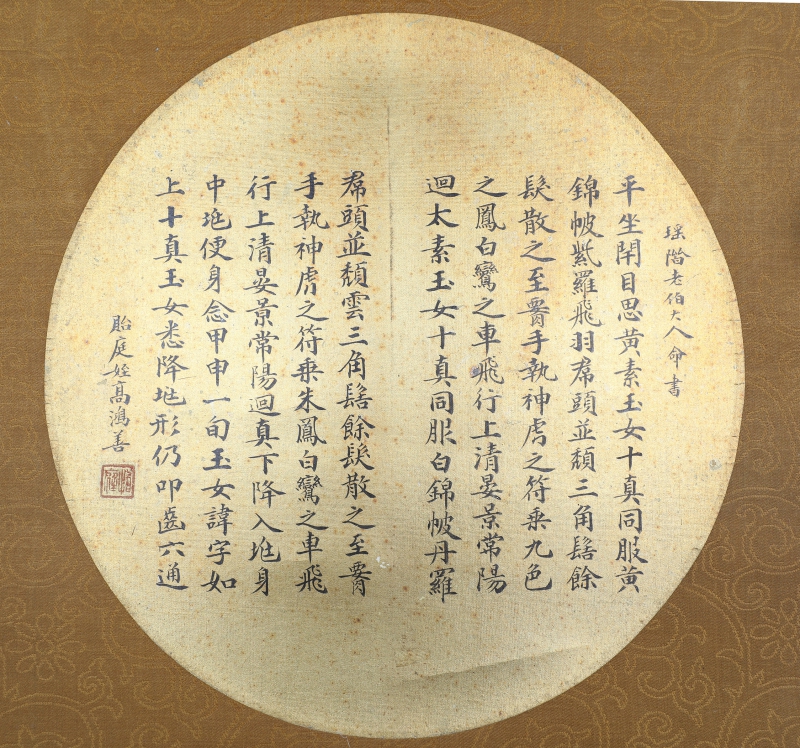 瑶階老伯大人命書
平坐閉目思黃素玉女十真同服黃
錦帔紫羅飛羽帬頭並頹三角髻餘
髮散之至𦝫手執神虎之符乗九色
之鳳白鸞之車飛行上清晏景常陽
迴太素玉女十真同服白錦帔丹羅
帬頭並頹雲三角髻餘髮散之至𦝫
手執神虎之符乗朱鳳白鸞之車飛
行上清晏景常陽迴真下降入兆身
中兆便身念甲申一旬玉女諱字如
上十真玉女悉降兆形仍叩齒六通
貽庭姪高鴻善